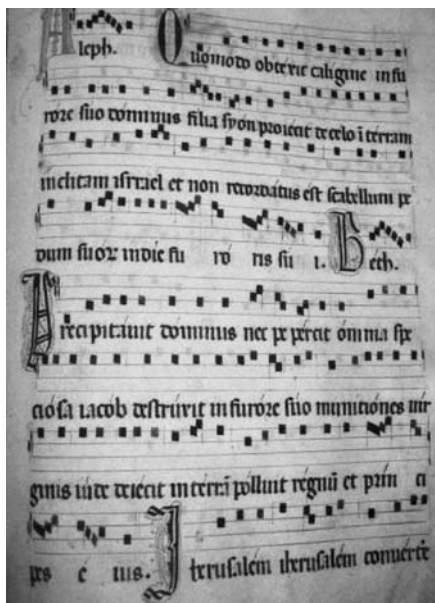 Aleph. Quomodo obtexit caligine in fu
rore suo dominus filia syon proiecit de celo ī terram
inclitam israel et non recordatus est scabellum pe
dum suor in die fu ro ris su i. Beth.
Precipitavit dominus nec pe percit omnia spe
ciosa iacob destruxit in furore suo munitiones vir
ginis iude deiecit in terrā polluit regnū et prin ci
pes e ius. Jherusalem iherusalem converte